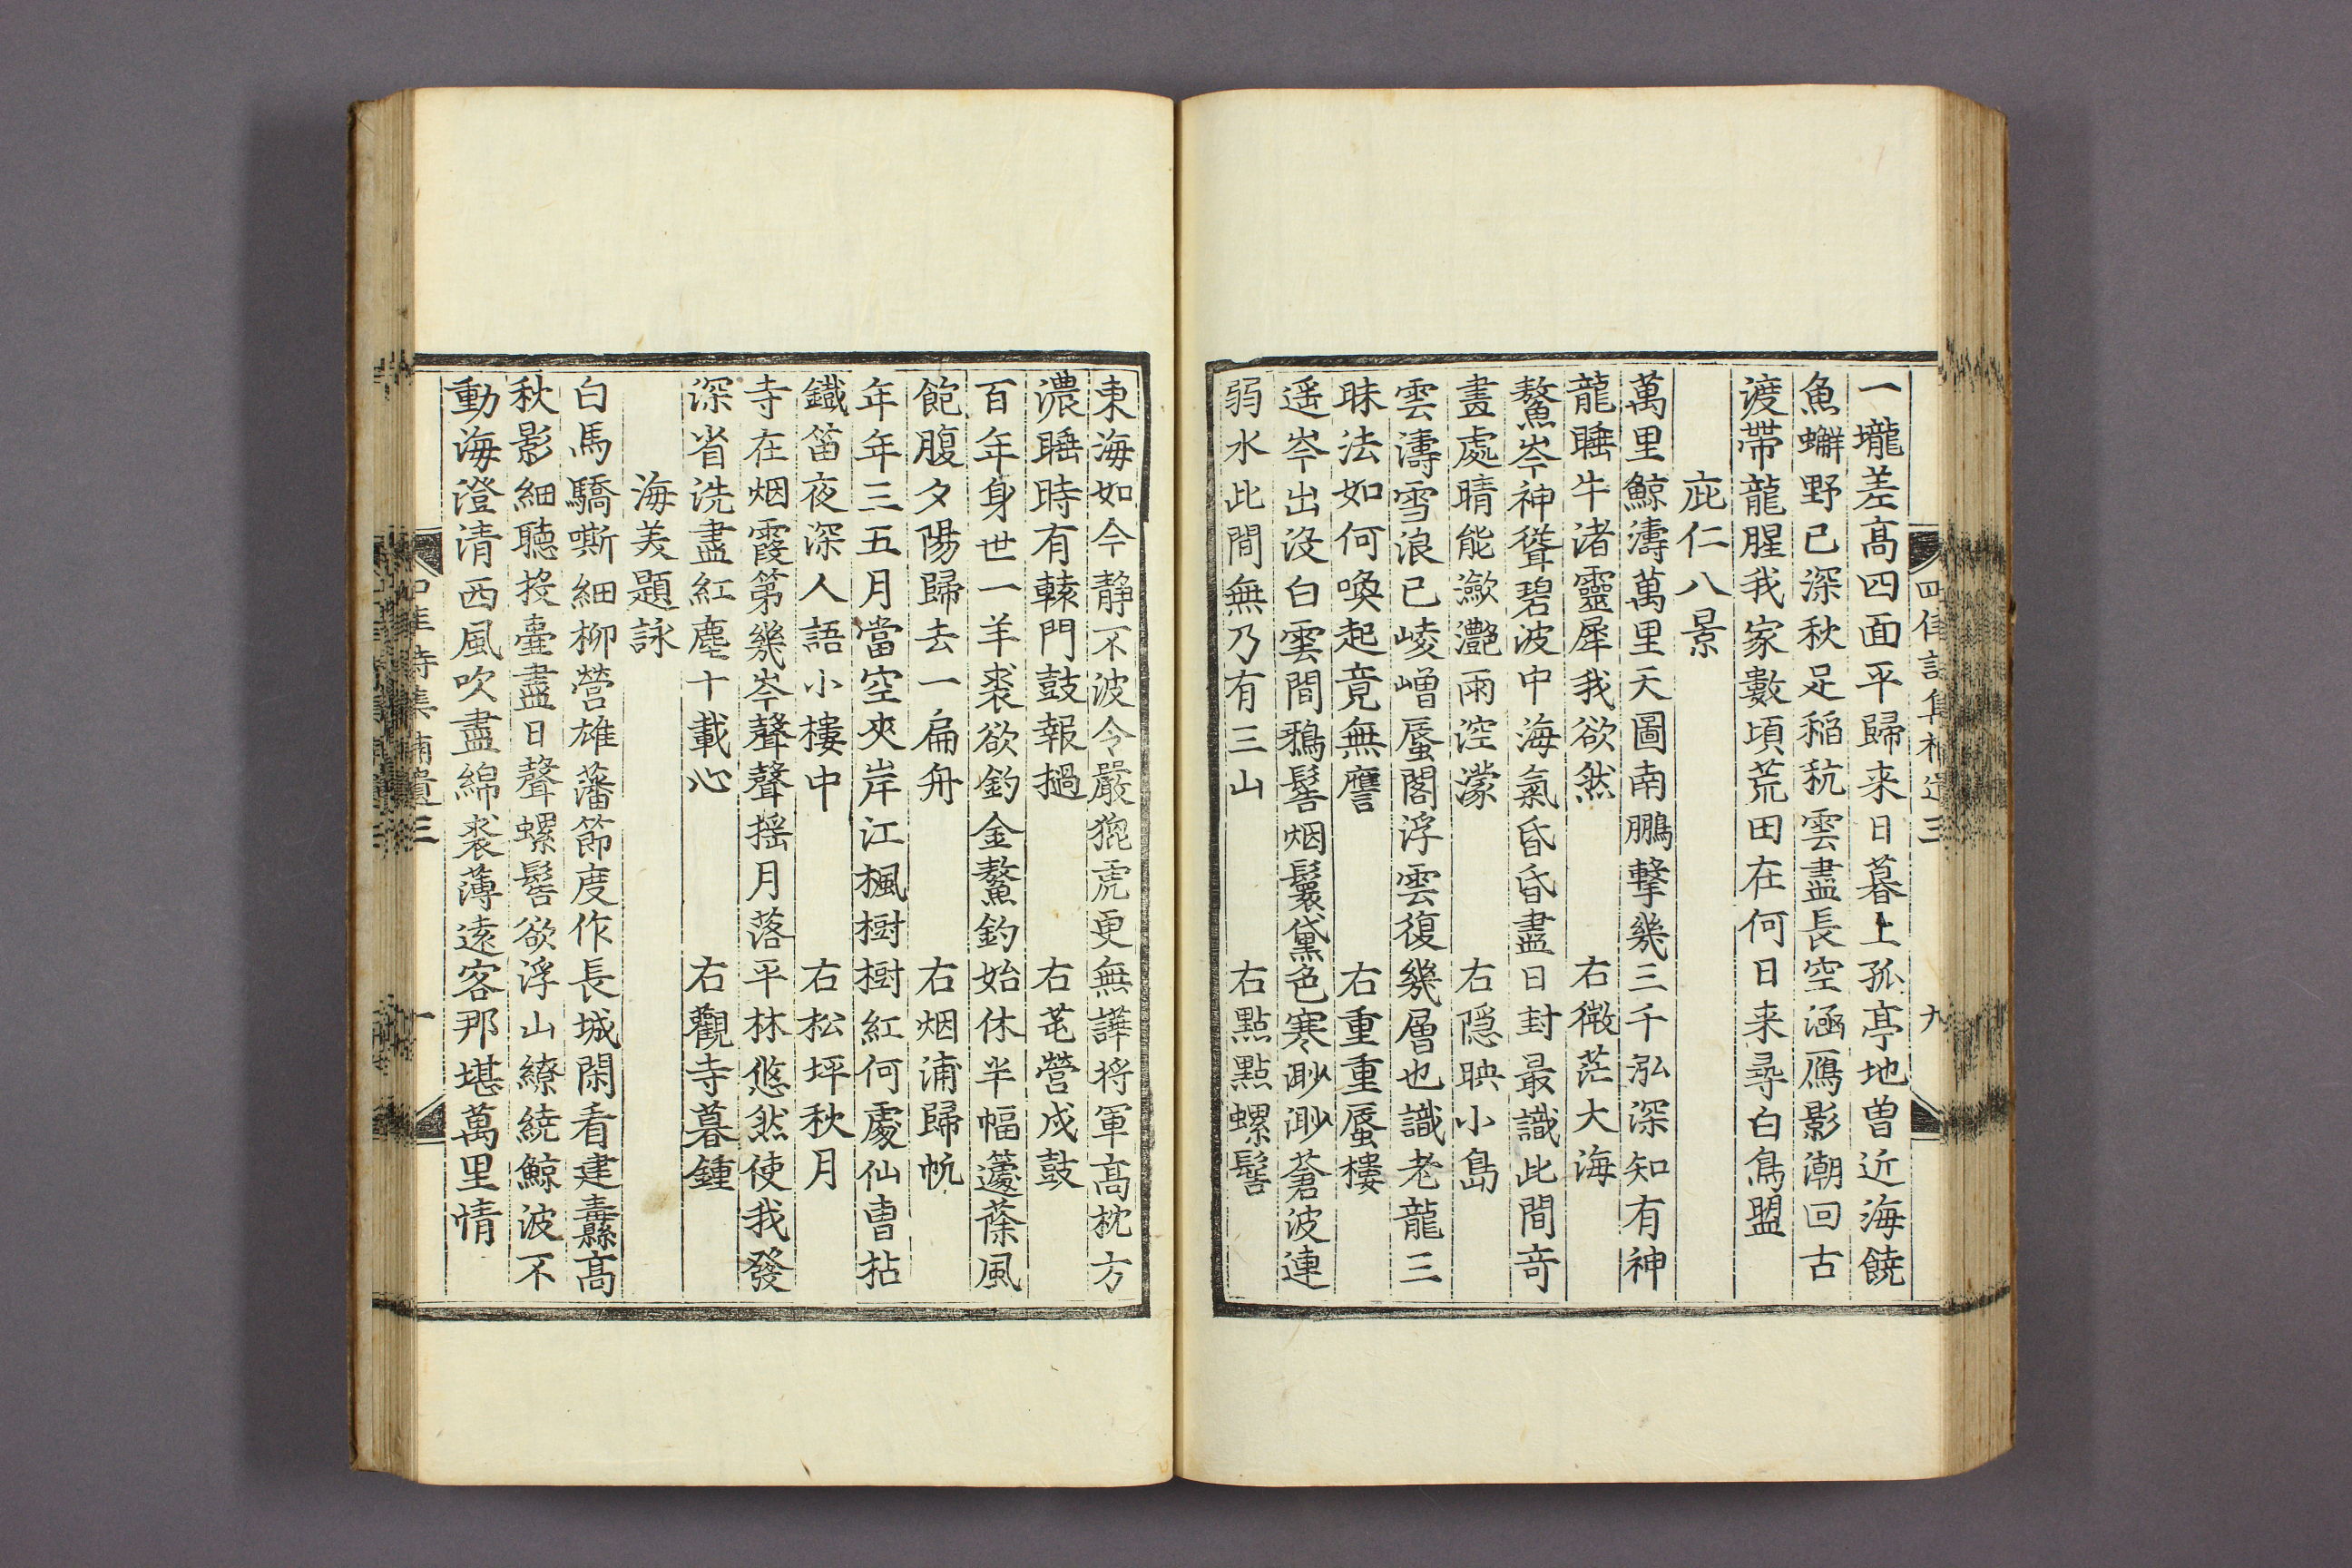 一壠差高四面平歸来日暮上孤亭地曽近海饒
魚蠏野已深秋足稲秔雲盡長空涵鴈影潮回古
渡帶龍腥我家數頃荒田在何日来尋白鳥盟
庇仁八景
萬里鯨濤萬里天圖南鵬擊幾三千泓深知有神
龍睡牛渚靈犀我欲然 右微茫大海
鰲岑神聳碧波中海氣昏昏盡日封最識此間竒
畫處晴能瀲灧雨涳濛 右隠映小島
雲濤雪浪已崚嶒蜃閣浮雲復幾層也識老龍三
昧法如何喚起竟無譍 右重重蜃樓
遥岑出没白雲間鴉髻烟鬟黛色寒渺渺蒼波連
弱水此間無乃有三山 右點點螺髻
東海如今静不波令嚴貔虎更無譁将軍高枕方
濃睡時有轅門鼓報撾 右芚營戍鼓
百年身世一羊裘欲釣金鰲釣始休半幅籧蒢風
飽腹夕陽歸去一扁舟 右烟浦歸帆
年年三五月當空夾岸江楓樹樹紅何處仙曺拈
鐵笛夜深人語小樓中 右松坪秋月
寺在烟霞第幾岑聲聲揺月落平林悠然使我發
深省洗盡紅塵十載心 右觀寺暮鍾
海美題詠
白馬驕嘶細柳營雄藩節度作長城閑看建纛縣高
秋影細聽投壷盡日聲螺髻欲浮山繚繞鯨波不
動海澄清西風吹盡綿裘薄逺客那堪萬里情